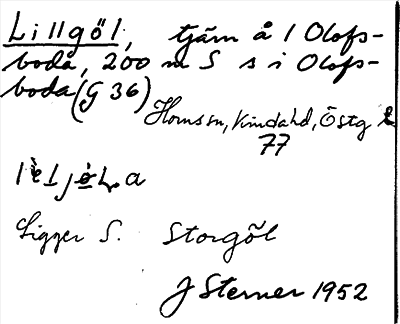 Lillgöl, tjärn å 1 Olofs-
boda, 200 m S s i Olofs-
boda (G 36)
Hornssn, Kinda hd, Östg l
77
Ligger S. Storgöl
J Sterner 1952